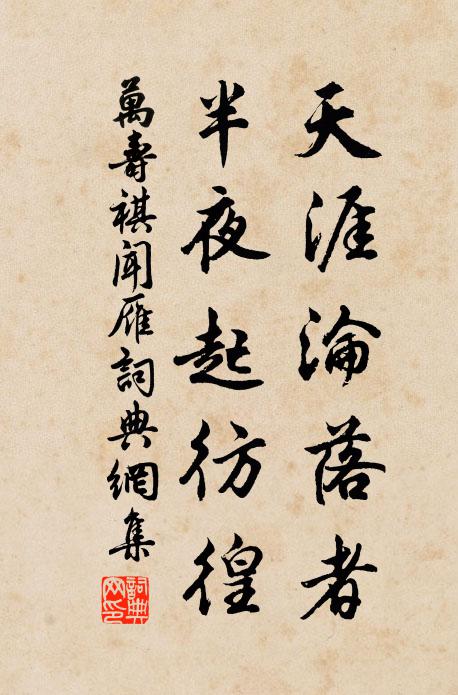 天涯淪落者
半夜起彷徨
萬壽祺聞雁詞典網集
詞典網印